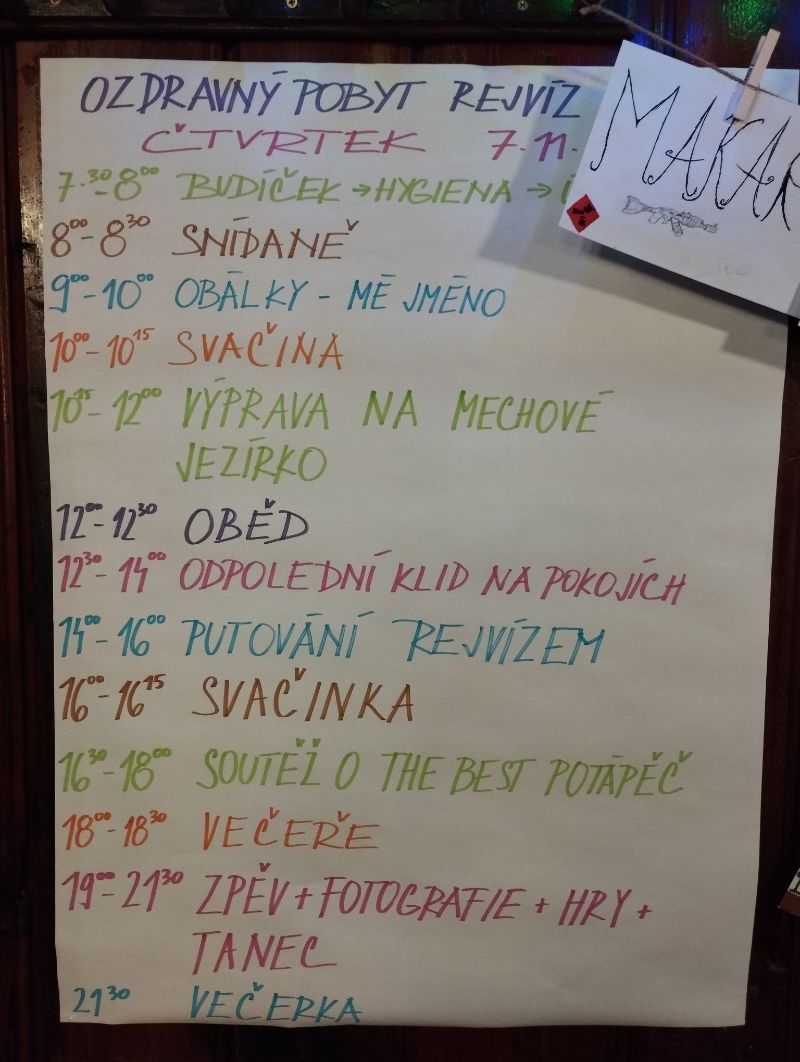 OZDRAVNÝ POBYT REJVÍZ
ČTVRTEK 7.11.
7.30-800 BUDÍČEK → HYGIENA →
800-830 SNÍDANĚ
900-1000 OBÁLKY - MÉ JMÉNO
1000-1015 SVAČINA
1015-1200 VÝPRAVA NA MECHOVÉ
JEZÍRKO
1200-1230 OBĚD
1230-1400 ODPOLEDNÍ KLID NA POKOJÍCH
1400-1600 PUTOVÁNÍ REJVÍZEM
1600-1615 SVAČINKA
1630-1800 SOUTĚŽ O THE BEST POTÁPĚČ
1800-1830 VEČEŘE
1900-2130 ZPĚV + FOTOGRAFIE + HRY +
TANEC
2130 VEČERKA
MAKA